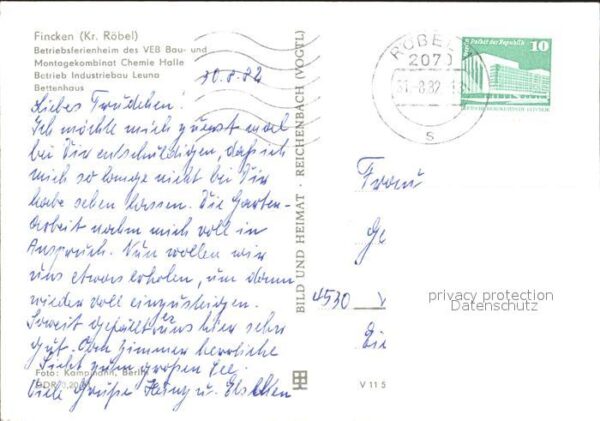 Fincken (Kr. Röbel)
Betriebsferienheim des VEB Bau- und
Montagekombinat Chemie Halle
Betrieb Industriebau Leuna
Bettenhaus
30.8.82
Liebes Trudchen!
Ich möchte mich zuerst mal
bei Dir entschuldigen, daß ich
mich so lange nicht bei Dir
habe sehen lassen. Die Garten-
arbeit nahm mich voll in
Anspruch. Nun wollen wir
uns etwas erholen, um dann
wieder voll einzusteigen.
Soweit gefällt es uns hier sehr
gut. Vom Zimmer herrliche
Sicht zum großen See.
Foto: Kampmann, Berlin
Viele Grüße Heinz u. Elschen
BILD UND HEIMAT · REICHENBACH (VOGTL)
RÖBEL
2070
31.-8.82
s
Palast der Republik 10
Frau
Ge
4530
Die
privacy protection
Datenschutz
V 11 5